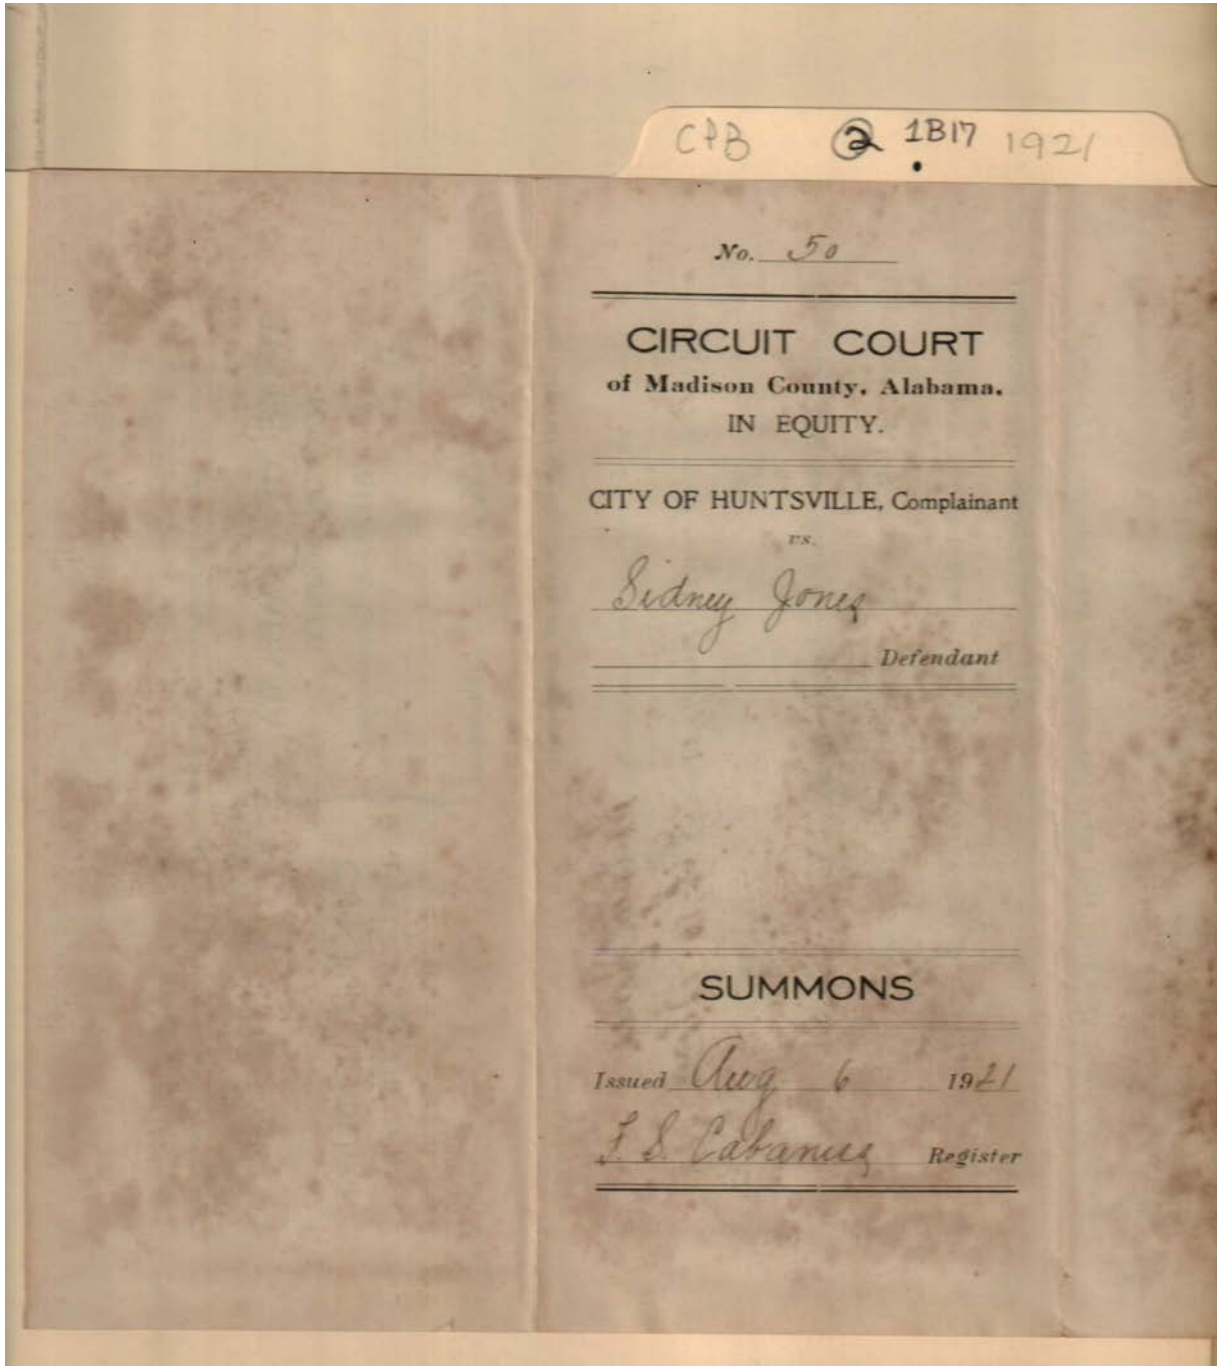 CPB 2 1B17 1921
No. 50
CIRCUIT COURT
of Madison County, Alabama.
IN EQUITY.
CITY OF HUNTSVILLE, Complainant
vs.
Sidney Jones
Defendant
SUMMONS
Issued Aug 6 1921
F. S. Cabaniss Register